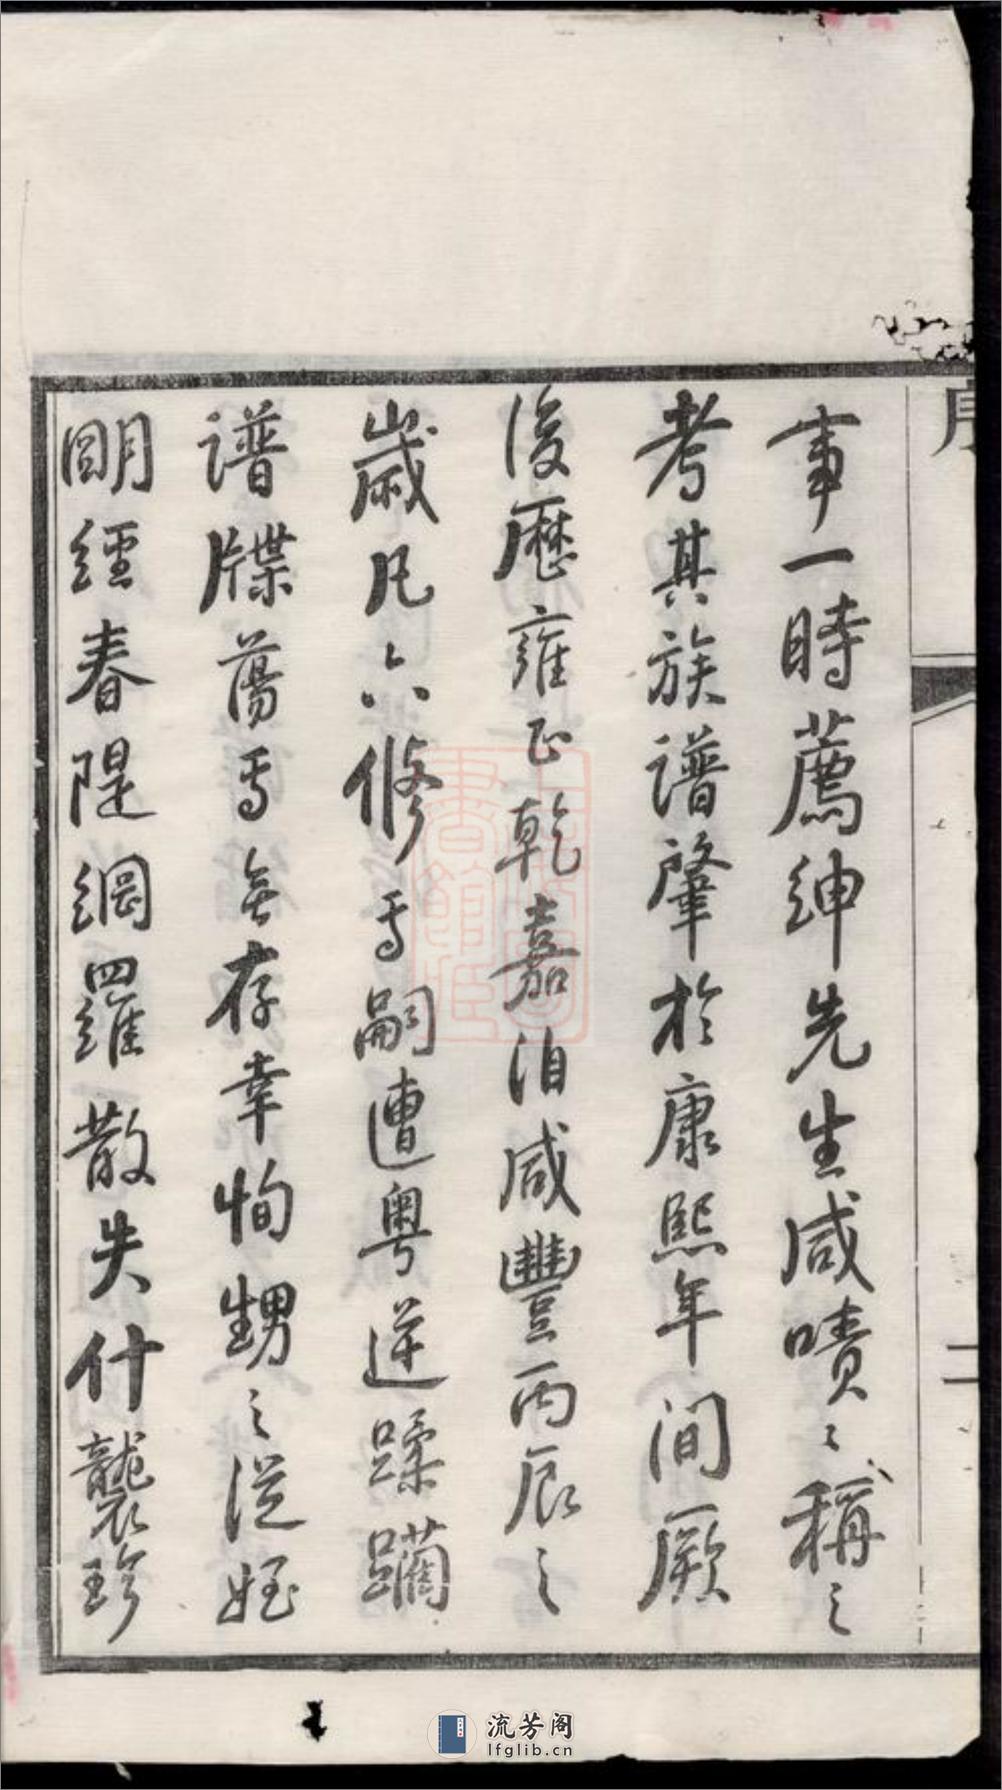 序
事一時薦紳先生咸嘖〻稱之
考其族譜肇於康熙年間厥
後歷雍正乾嘉洎咸豐丙辰之
歲凡六修焉嗣遭粵逆蹂躪
譜牒蕩焉無存幸恂甥之從姪
朙經春隄綱羅散失什襲珍
二
流芳阁
lfglib.cn